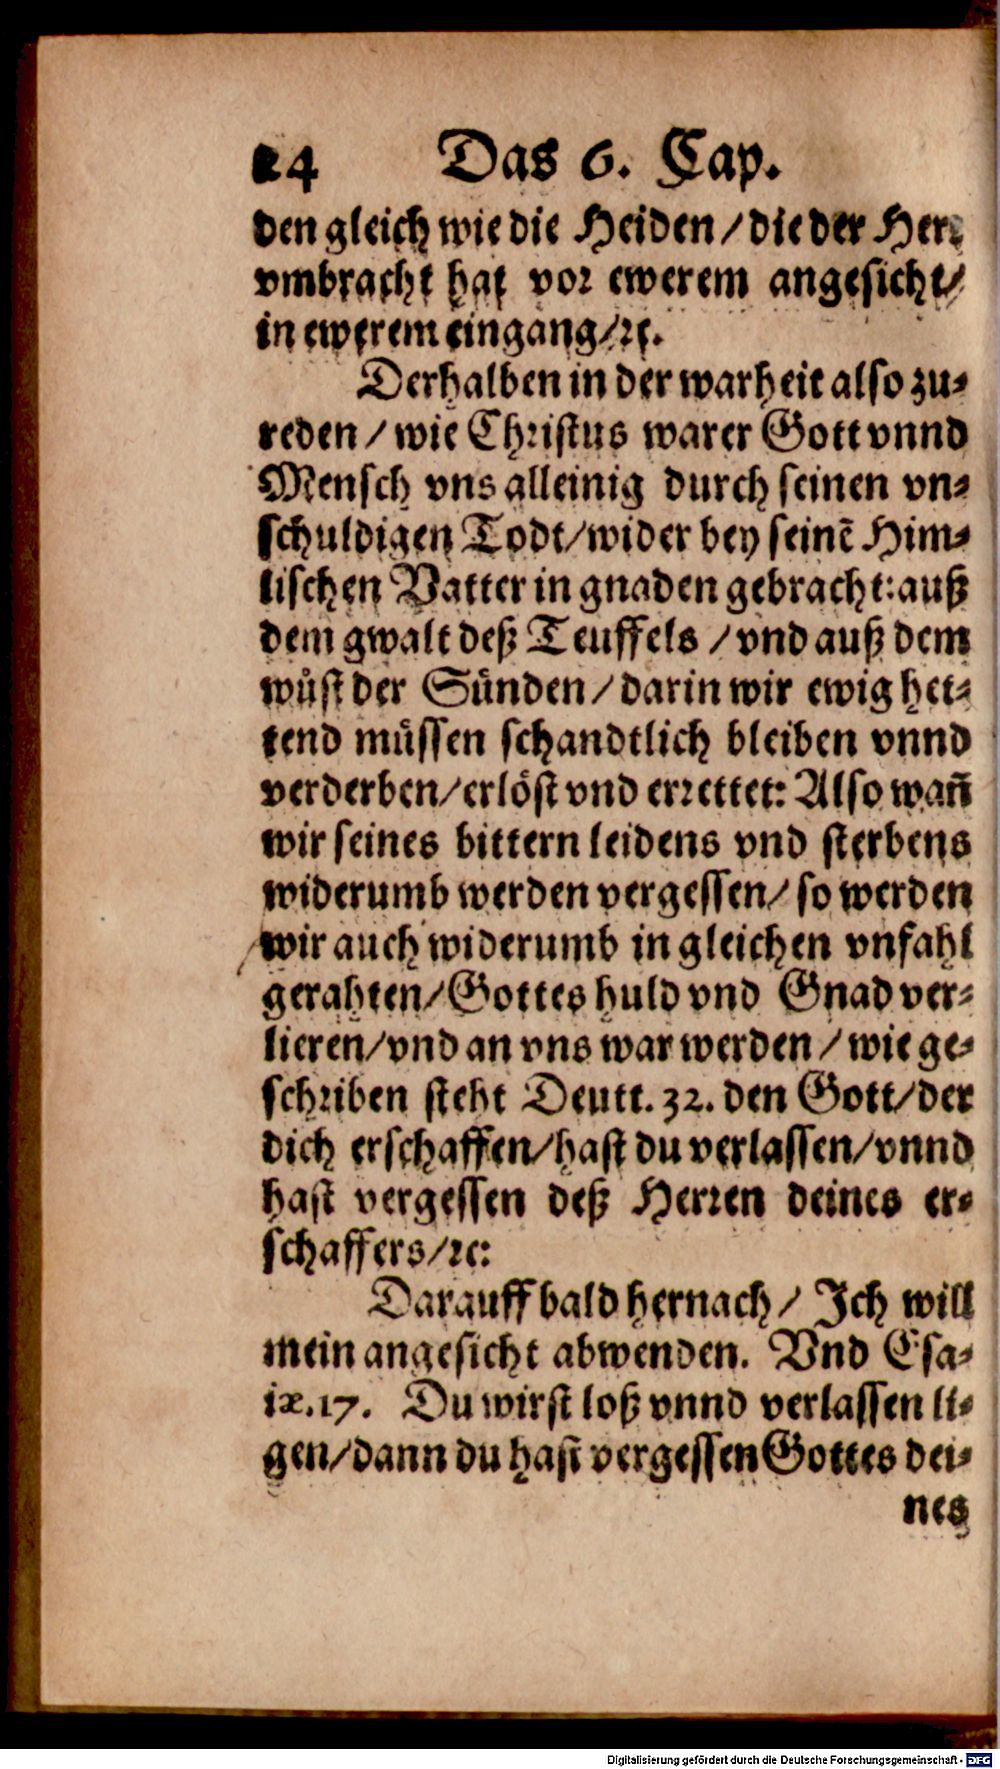 24 Das 6. Cap.
den gleich wie die Heiden/die der Herr
vmbracht hat vor ewerem angesicht/
in ewerem eingang/ꝛc.
Derhalben in der warheit also zu⸗
reden/wie Christus warer Gott vnnd
Mensch vns alleinig durch seinen vn⸗
schuldigen Todt/wider bey seinē Him⸗
lischen Vatter in gnaden gebracht: auß
dem gwalt deß Teuffels/vnd auß dem
wuͤst der Suͤnden/darin wir ewig het⸗
tend muͤssen schandtlich bleiben vnnd
verderben/erloͤst vnd errettet: Also wañ
wir seines bittern leidens vnd sterbens
widerumb werden vergessen/so werden
wir auch widerumb in gleichen vnfahl
gerahten/Gottes huld vnd Gnad ver⸗
lieren/vnd an vns war werden/wie ge⸗
schriben steht Deutt. 32. den Gott/der
dich erschaffen/hast du verlassen/vnnd
hast vergessen deß Herren deines er⸗
schaffers/ꝛc:
Darauff bald hernach/Ich will
mein angesicht abwenden. Vnd Esa⸗
iæ.17. Du wirst loß vnnd verlassen li⸗
gen/dann du hast vergessen Gottes dei⸗
nes
Digitalisierung gefördert durch die Deutsche Forschungsgemeinschaft - DFG